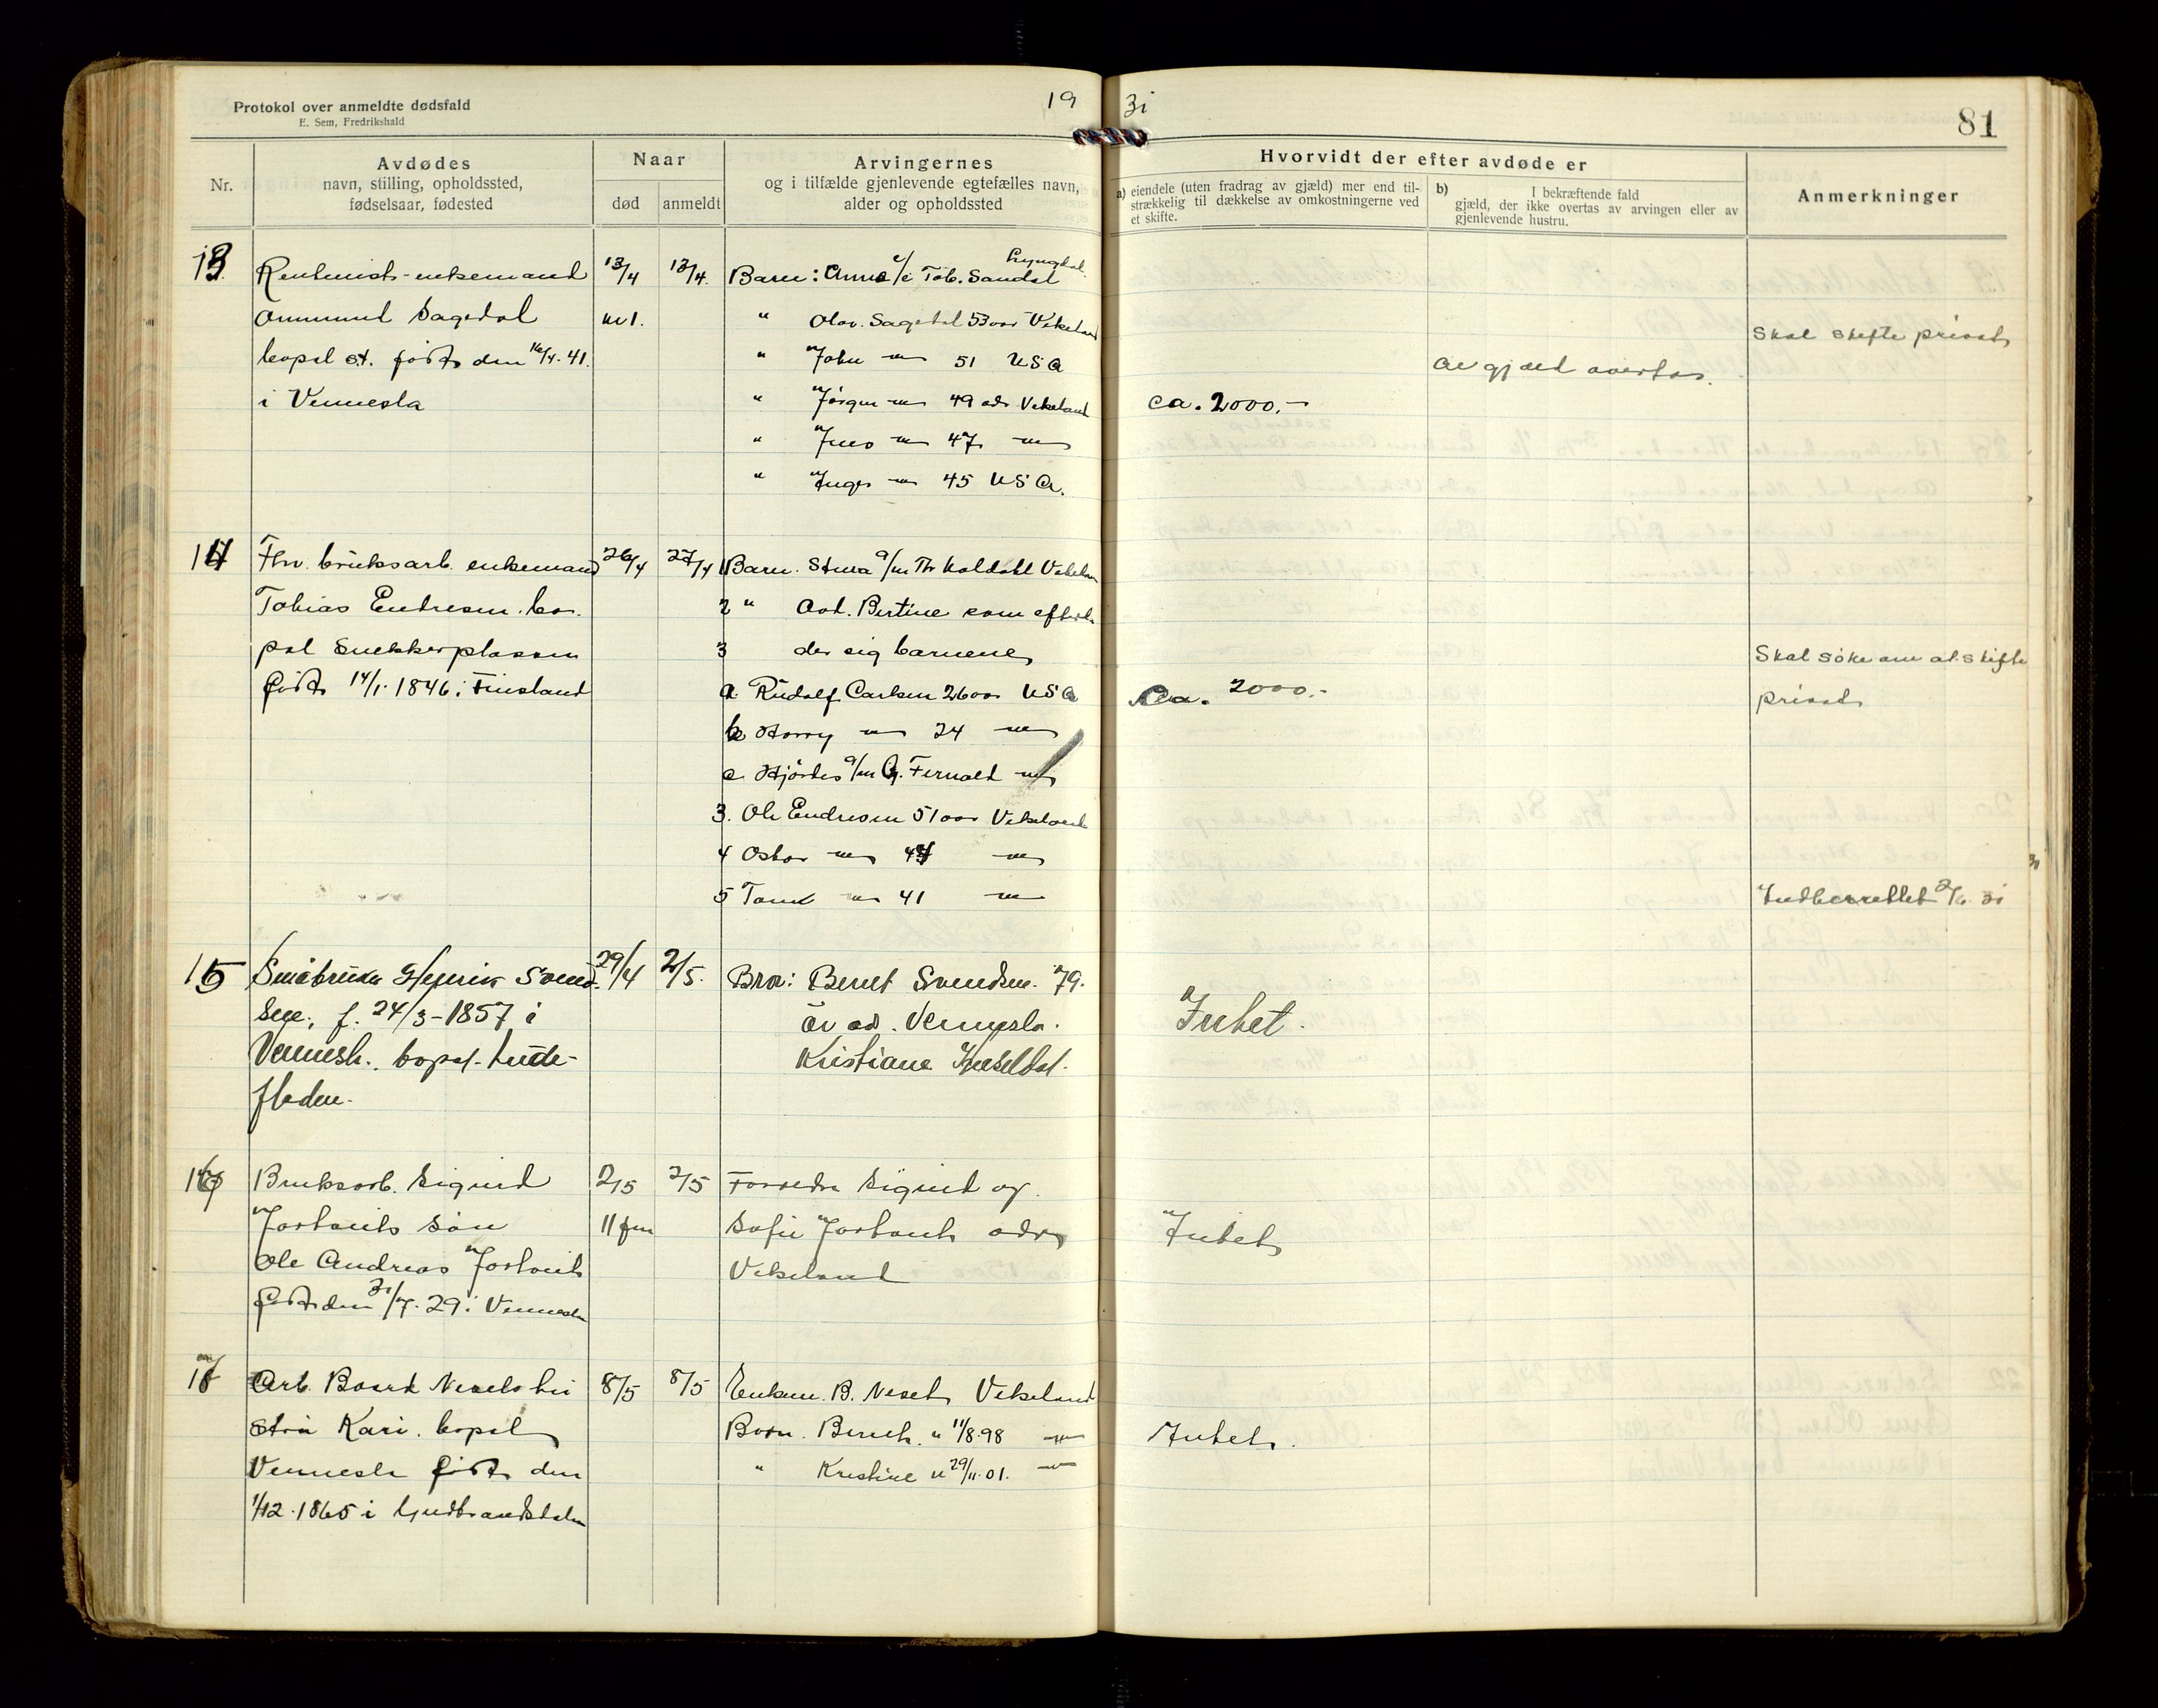 Protokol over anmeldte dødsfald
E. Sem, Fredrikshald
19 31
81
Nr.
Avdødes
navn, stilling, opholdssted,
fødselsaar, fødested
Naar
død
anmeldt
Arvingernes
og i tilfælde gjenlevende egtefælles navn,
alder og opholdssted
Hvorvidt der efter avdøde er
a) eiendele (uten fradrag av gjæld) mer end til-
strækkelig til dækkelse av omkostningerne ved
et skifte.
b) I bekræftende fald
gjæld, der ikke overtas av arvingen eller av
gjenlevende hustru.
Anmerkninger
13 enkemand 13/4 13/4. Barn: Anna Tob. Sandal Lyngdal
Ommund Sagedal kl 1. " Olav Sagedal 53 aar Vikeland
bopel st. født den 16/4-41. " John — 51 USA
i Vennesla " Jörgen — 49 adr Vikeland
" Jens — 47 —
" Inger — 45 USA.
ca. 2000.-
gjæld overtas.
Skal skifte privat
14 Fhv. bruksarb. enkemand 26/4 27/4 1 Barn. g/m Vikeland
Tobias Endresen. bo- 2 " avd. Bertine som efterla-
pæl Snekkerplassen 3 der sig barnene
født 14/1. 1846 i Finsland a Rudolf Carlsen 26 aar USA
b Harry — 24 —
c Hjördis g/m —
3. Ole Endresen 51 aar Vikeland
4 Oskar — —
5 — 41 —
Ca. 2000.-
Skal söke om at skifte
privat
Indberettet 2/6 31
15 Småbruker Henrik Svend- 29/4 2/5. Bror: Bernt Svendsen. 79.
sen, f. 24/3-1857 i år ad. Vennesla.
Vennesla. bopel. Kristiane
fladen.
Intet.
16 Bruksarb. Sigurd 2/5 2/5 Foreldre Sigurd og
sön 11 fm Sofie adr
Ole Andreas Vikeland
født den 31/7. 29 i Vennesla
Intet
17 Arb. Baard Nesets hu 8/5 8/5 Enkem. B. Neset Vikeland
stru Kari. bopel Barn. " 11/8-98 —
Vennesla født den " Kristine " 29/11-01. —
1/12-1865 i Gudbrandsdalen
Intet.